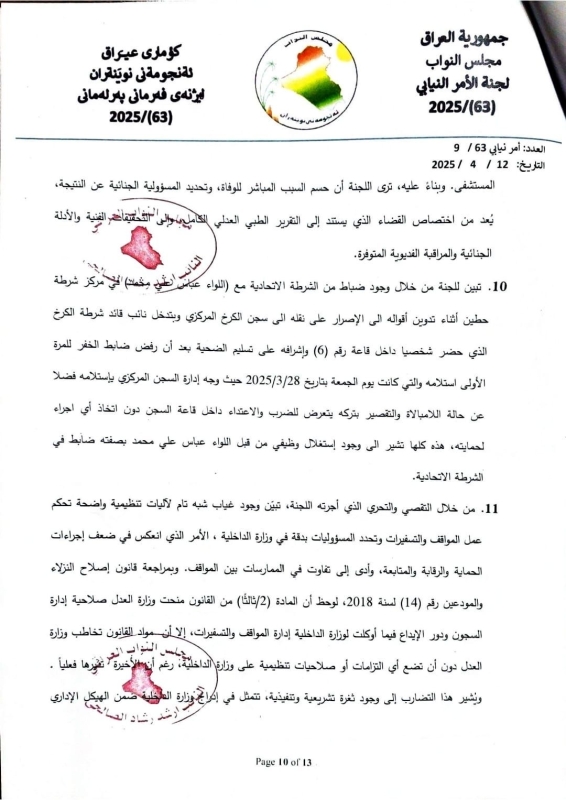 جمهورية العراق
مجلس النواب
لجنة الأمر النيابي
(63)/2025
كۆماری عیـراق
ئەنجومەنی نوێنەران
لیژنەی فەرمانی پەرلەمانی
(63)/2025
مجلس النواب
ئەنجومەنی نوێنەران
العدد: أمر نيابي 63/ 9
التاريخ: 12 / 4 / 2025
المستشفى. وبناءً عليه، ترى اللجنة أن حسم السبب المباشر للوفاة، وتحديد المسؤولية الجنائية عن النتيجة،
يُعد من اختصاص القضاء الذي يستند إلى التقرير الطبي العدلي الكامل، وإلى التحقيقات الفنية والأدلة
الجنائية والمراقبة الفديوية المتوفرة.
10. تبين للجنة من خلال وجود ضباط من الشرطة الاتحادية مع (اللواء عباس علي محمد) في مركز شرطة
حطين أثناء تدوين أقواله الى الإصرار على نقله الى سجن الكرخ المركزي وبتدخل نائب قائد شرطة الكرخ
الذي حضر شخصيا داخل قاعة رقم (6) وإشرافه على تسليم الضحية بعد أن رفض ضابط الخفر للمرة
الأولى استلامه والتي كانت يوم الجمعة بتاريخ 2025/3/28 حيث وجه إدارة السجن المركزي بإستلامه فضلا
عن حالة اللامبالاة والتقصير بتركه يتعرض للضرب والاعتداء داخل قاعة السجن دون اتخاذ أي اجراء
لحمايته، هذه كلها تشير الى وجود إستغلال وظيفي من قبل اللواء عباس علي محمد بصفته ضابط في
الشرطة الاتحادية.
11. من خلال التقصي والتحري الذي أجرته اللجنة، تبيّن وجود غياب شبه تام لآليات تنظيمية واضحة تحكم
عمل المواقف والتسفيرات وتحدد المسؤوليات بدقة في وزارة الداخلية ، الأمر الذي انعكس في ضعف إجراءات
الحماية والرقابة والمتابعة، وأدى إلى تفاوت في الممارسات بين المواقف. وبمراجعة قانون إصلاح النزلاء
والمودعين رقم (14) لسنة 2018، لوحظ أن المادة (2/ثالثًا) من القانون منحت وزارة العدل صلاحية إدارة
السجون ودور الإيداع فيما أوكلت لوزارة الداخلية إدارة المواقف والتسفيرات، إلا أن مواد القانون تخاطب وزارة
العدل دون أن تضع أي التزامات أو صلاحيات تنظيمية على وزارة الداخلية، رغم أن الأخيرة تديرها فعلياً .
ويُشير هذا التضارب إلى وجود ثغرة تشريعية وتنفيذية، تتمثل في إدراج وزارة الداخلية ضمن الهيكل الإداري
Page 10 of 13